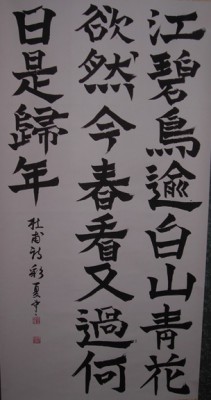 江碧鳥逾白山青花
欲然今春看又過何
日是歸年
杜甫詩